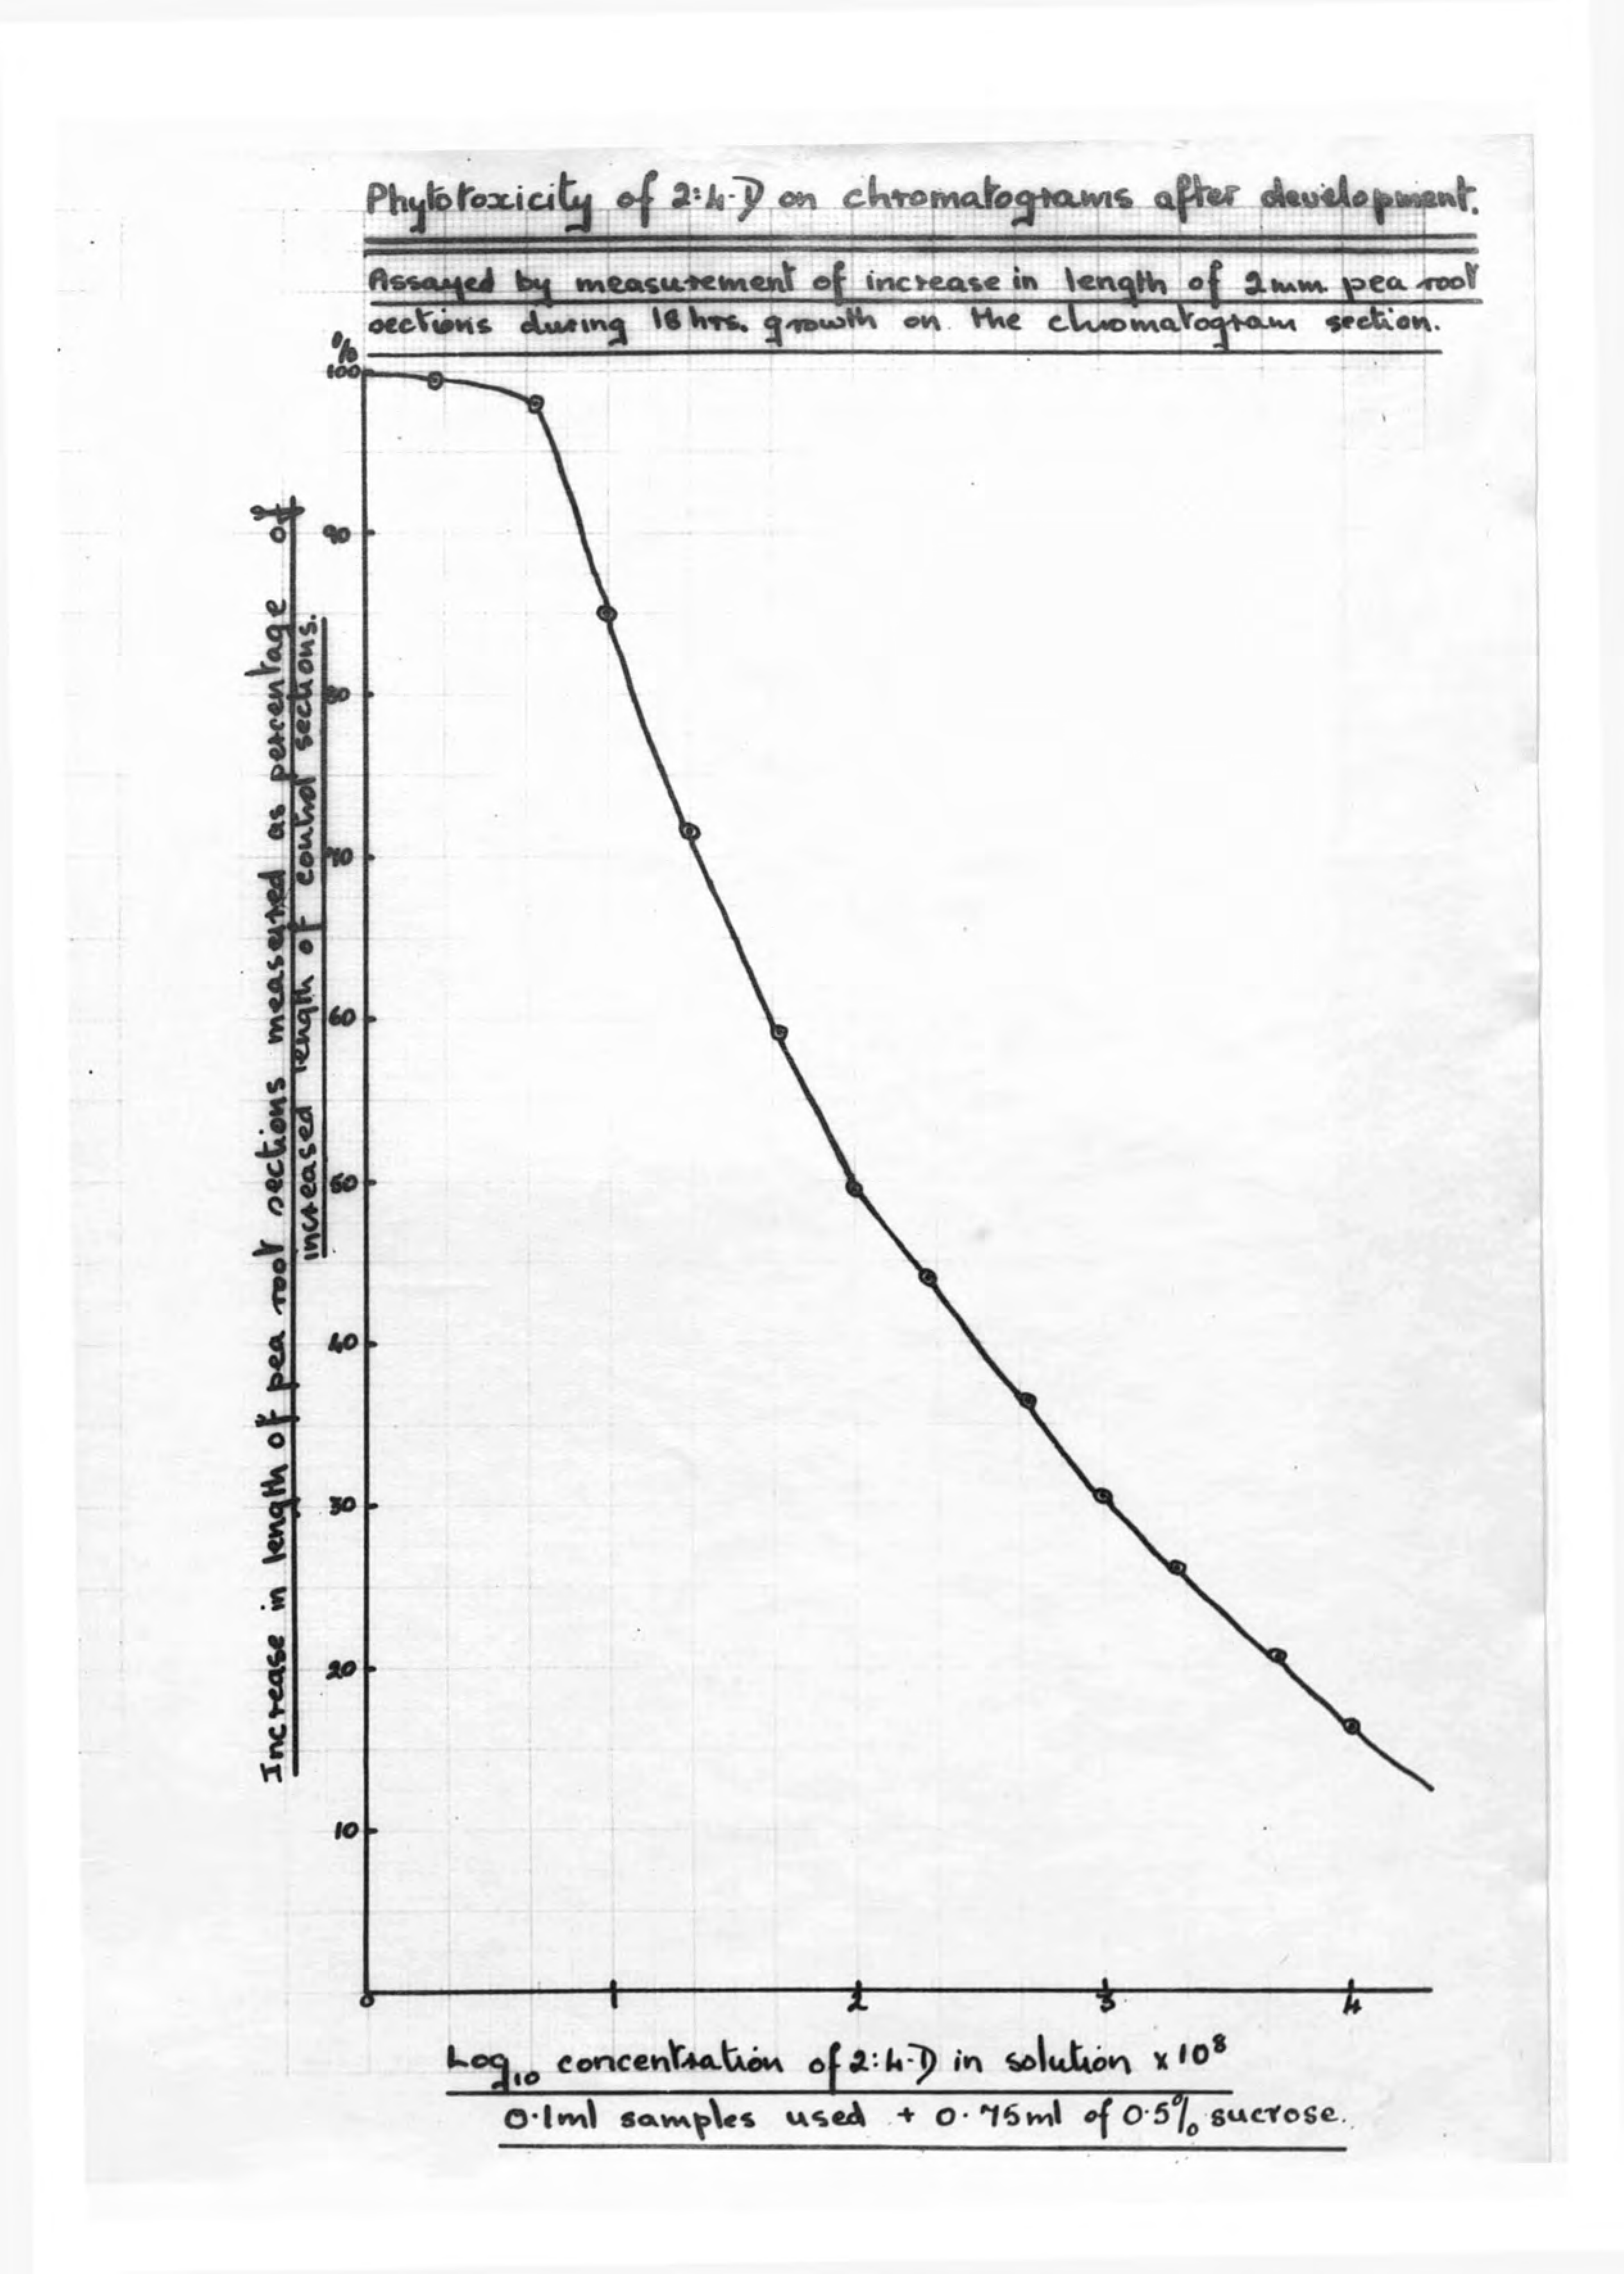 Phytotoxicity of 2:4-D on chromatograms after development.
Assayed by measurement of increase in length of 2mm. pea root
sections during 18 hrs. growth on the chromatogram section.
%
100
90
80
70
60
50
40
30
20
10
Increase in length of pea root sections measured as percentage of
increased length of control sections.
0 1 2 3 4
Log10 concentration of 2:4-D in solution x 10⁸
0.1ml samples used + 0.75ml of 0.5% sucrose.